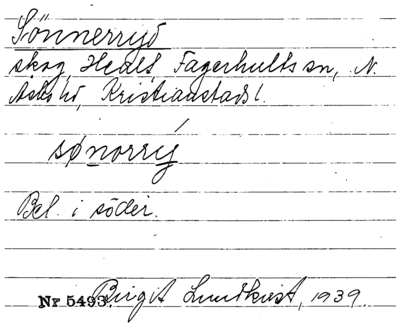 Sönnerryd
skog, Healt, Fagerhults sn, N.
Åsbo hd, Kristianstads l.
sønorrý
Bel. i söder.
Nr 5493. Birgit Lundkvist, 1939.